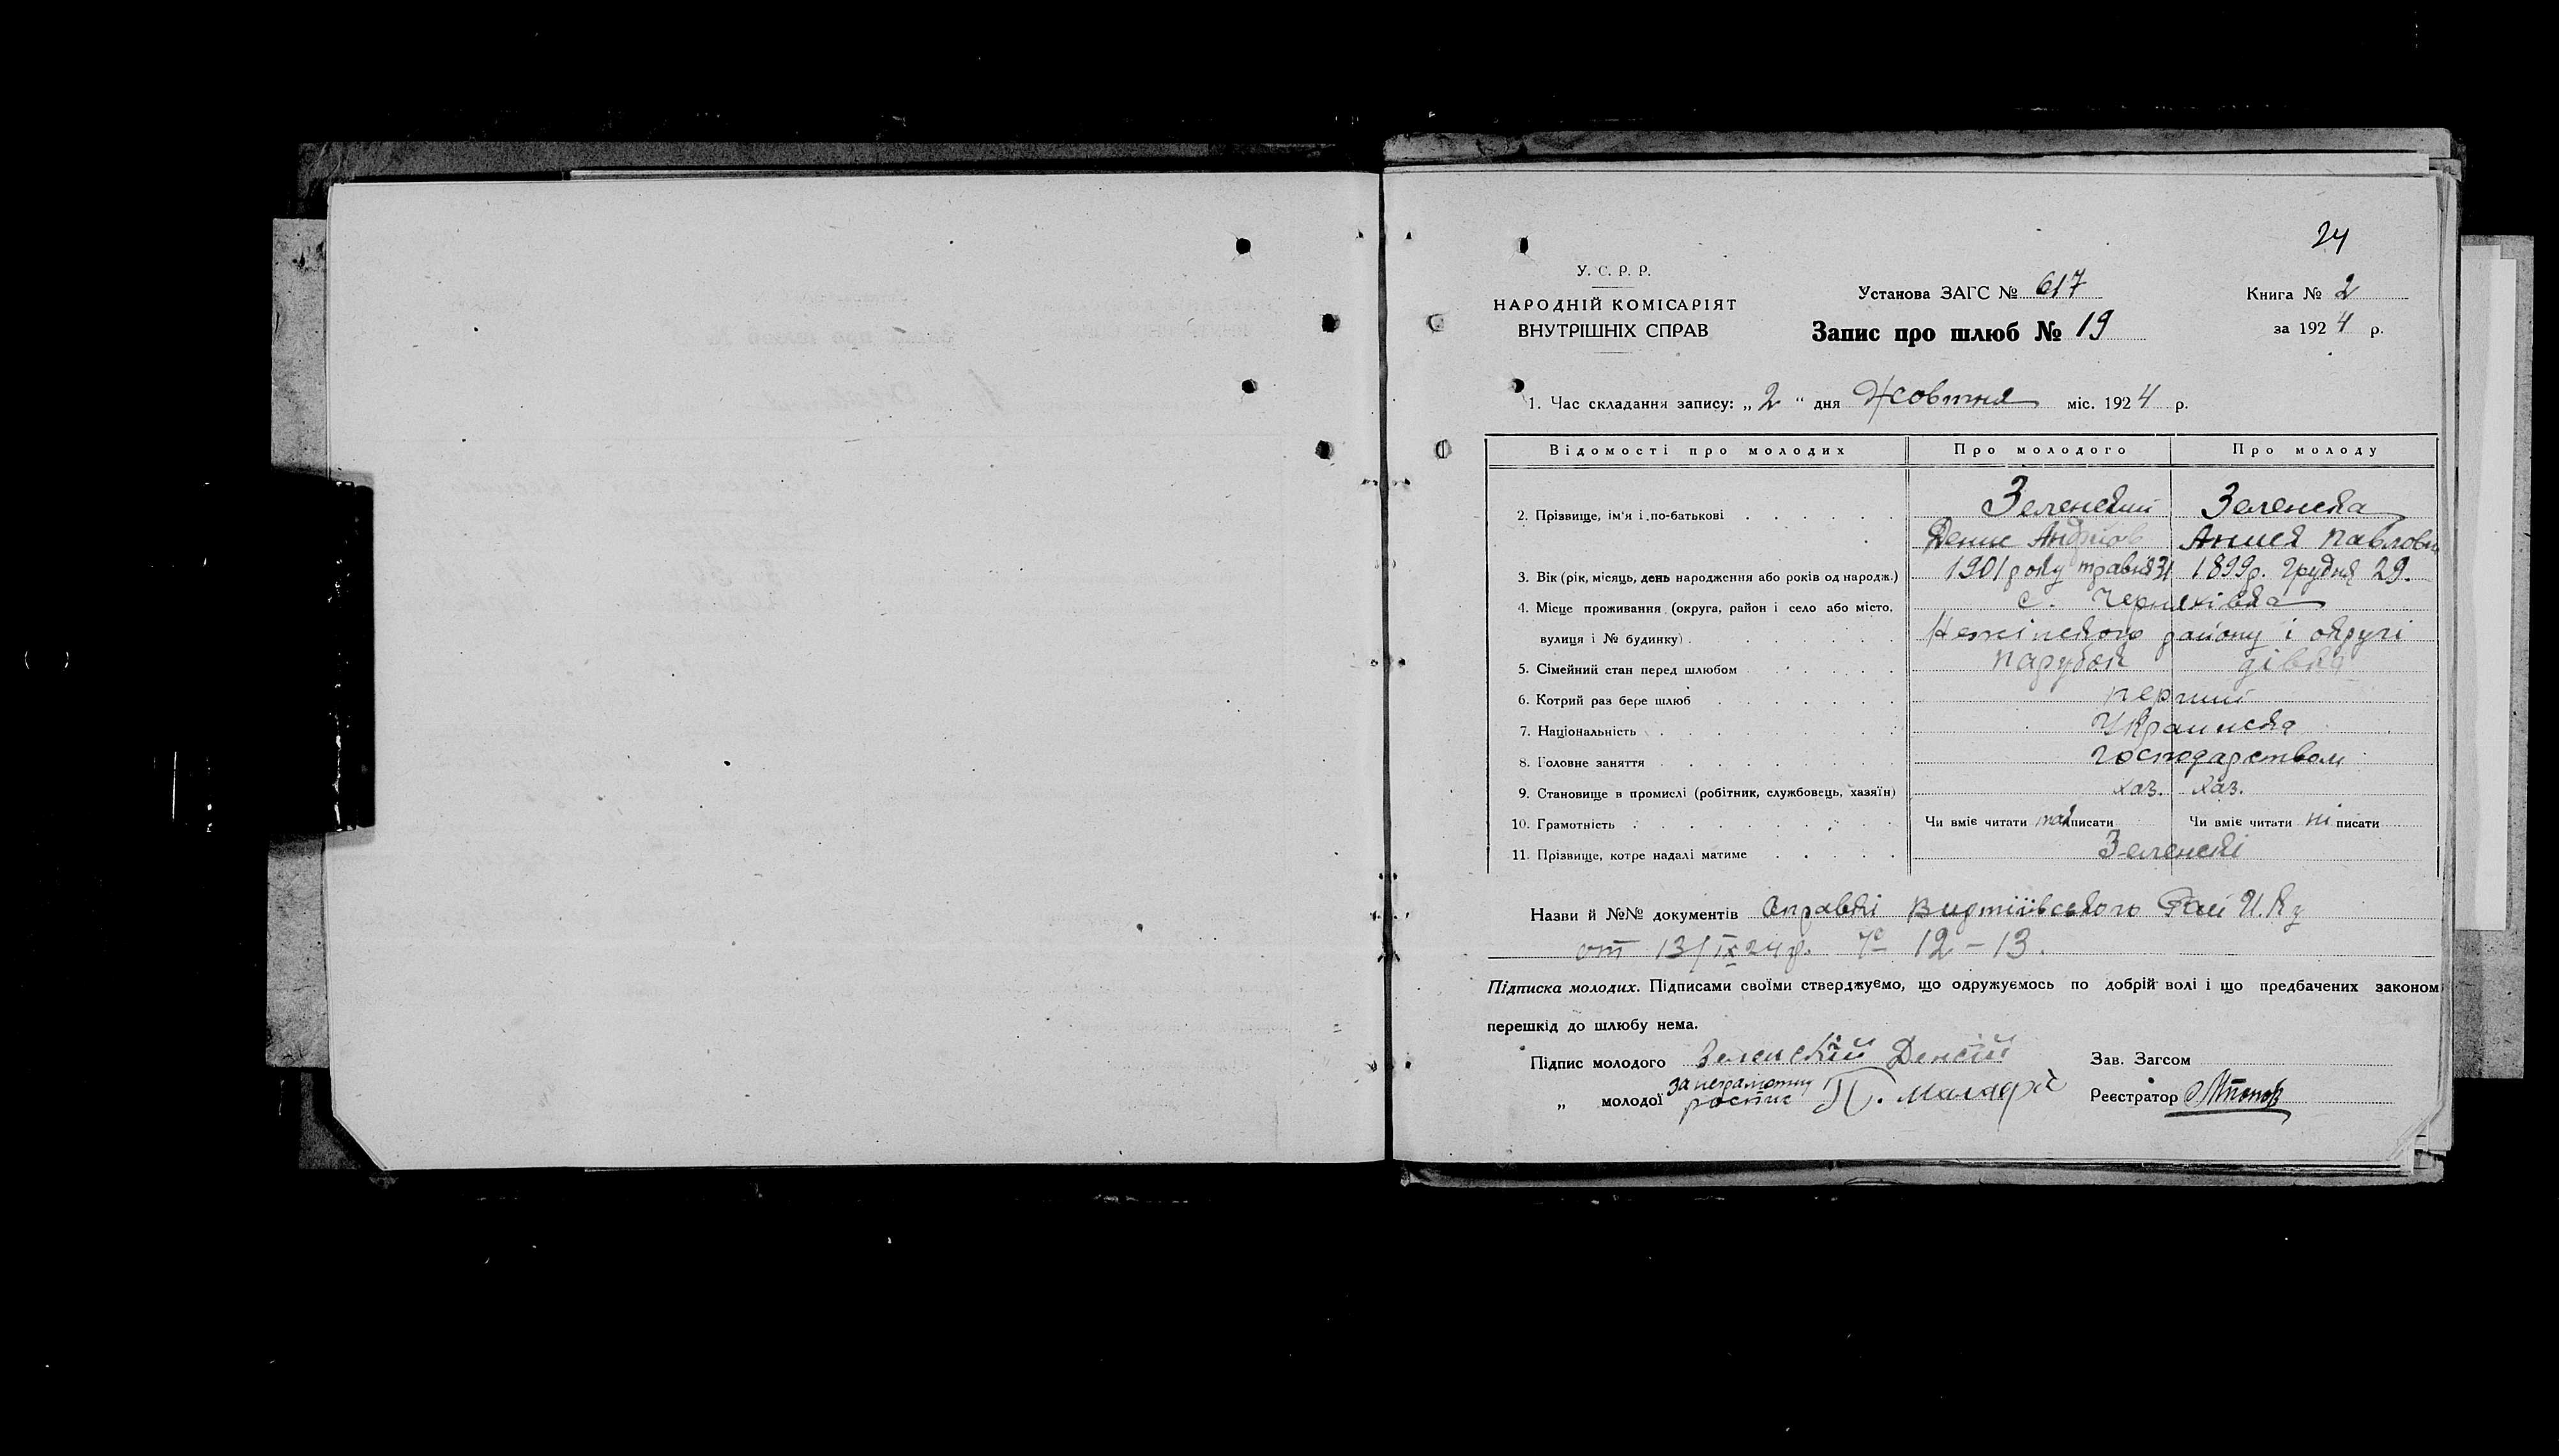 24
У. С. Р. Р.
НАРОДНІЙ КОМІСАРІЯТ
ВНУТРІШНІХ СПРАВ
Установа ЗАГС № 617
Запис про шлюб № 19
Книга № 2
за 1924 р.
1. Час складання запису: „ 2 “ дня Жовтня міс. 1924 р.
Відомості про молодих Про молодого Про молоду
2. Прізвище, ім'я і по-батькові Зеленский Зеленска
Денис Андріїв Анися Павловн
3. Вік (рік, місяць, день народження або років од народж.) 1901 року травня 31 1899 р. Грудня 29.
4. Місце проживання (округа, район і село або місто, с. Черняхівка
вулиця і № будинку) Неженського району і округі
5. Сімейний стан перед шлюбом парубок дівка
6. Котрий раз бере шлюб перший
7. Національність Украинска
8. Головне заняття господарством
9. Становище в промислі (робітник, службовець, хазяїн) хаз. хаз.
10. Грамотність Чи вміє читати так писати Чи вміє читати ні писати
11. Прізвище, котре надалі матиме Зеленскі
Назви й №№ документів Справкі Вертіївського Рай И.К
от 13/IX 24 р. № 12-13.
Підписка молодих. Підписами своїми стверджуємо, що одружуємось по добрій волі і що предбачених законом
перешкід до шлюбу нема.
Підпис молодого Зеленскій Зав. Загсом
за неграмотну
„ молодої роспис П. Реєстратор